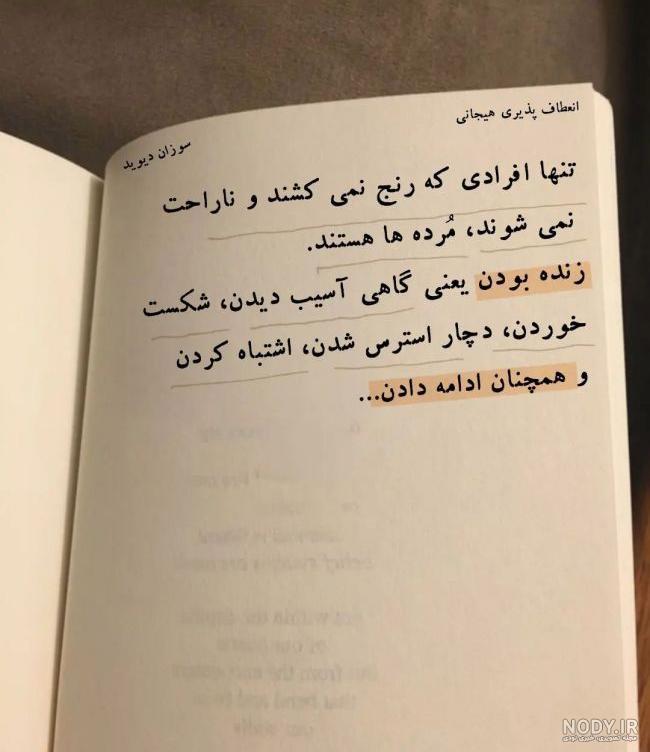 انعطاف پذیری هیجانی
سوزان دیوید
تنها افرادی که رنج نمی کشند و ناراحت
نمی شوند، مُرده ها هستند.
زنده بودن یعنی گاهی آسیب دیدن، شکست
خوردن، دچار استرس شدن، اشتباه کردن
و همچنان ادامه دادن...
NODY.IR